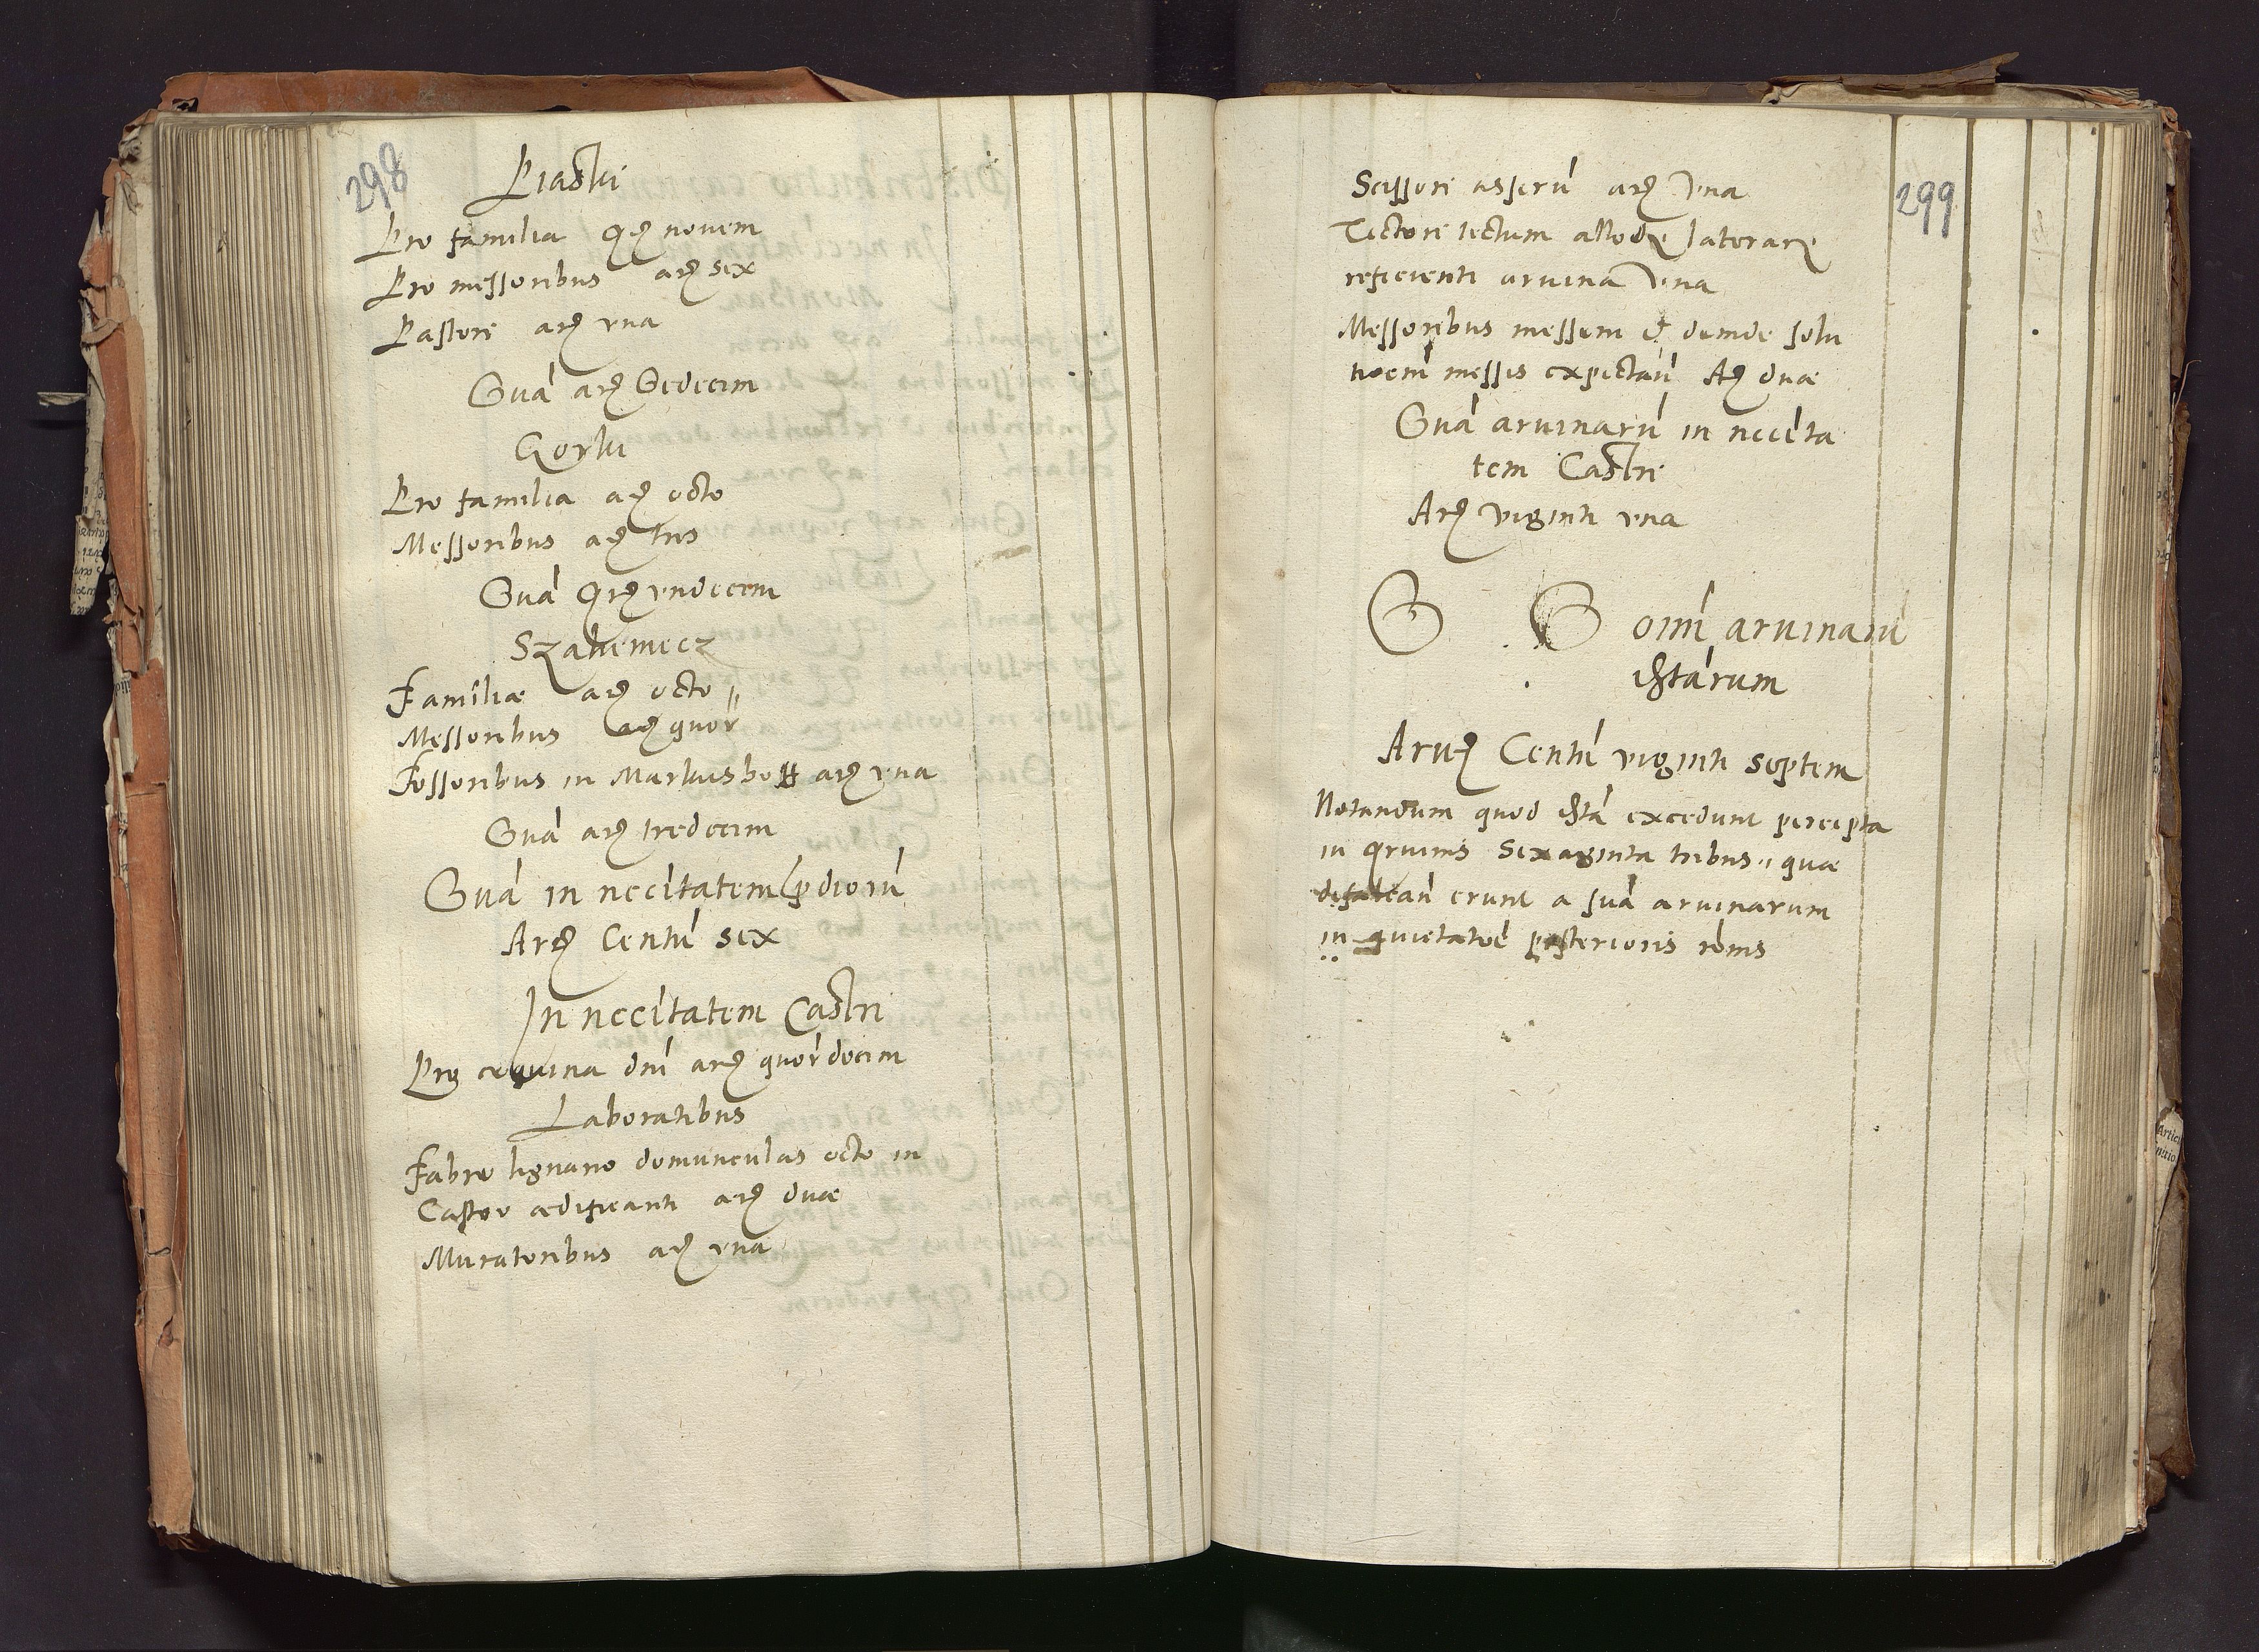 298
Piaski
Pro familia arꝫ novem
Pro messoribus arꝫ sex
Pastori arꝫ vna
Suḿa arꝫ Sedecim
Gorki
Pro familia arꝫ octo
Messoribus arꝫ tres
Suḿa arꝫ vndecim
Szakemecz
Familiæ arꝫ octo
Messoribus arꝫ quor
Fossoribus in arꝫ vna
Suḿa arꝫ tredecim
Suḿa in neccitatem prdiorú
Arꝫ Centú sex
In neccitatem Castri
Pro coquina dni arꝫ quordecim
Laboratibus
Fabro lignario domunculas octo in
Castro ædificanti arꝫ duæ
Muratoribus arꝫ vna
299
Scissori asserú arꝫ vna
Tectori tectum allodꝫ laterarꝫ
reficienti aruina vna
Messoribus messem et deinde solu
tioem messis expectań Arꝫ duæ
Suḿa aruinarú in neccita
tem Castri
Arꝫ viginti vna
S S oim aruinarú
distarum
Aruꝫ Centú viginti septem
Notandum quod dista excedunt percepta
in aruinis Sexaginta tribus quæ
difalcań erunt a suḿa aruinarum
in quietatoe posterioris rōnis